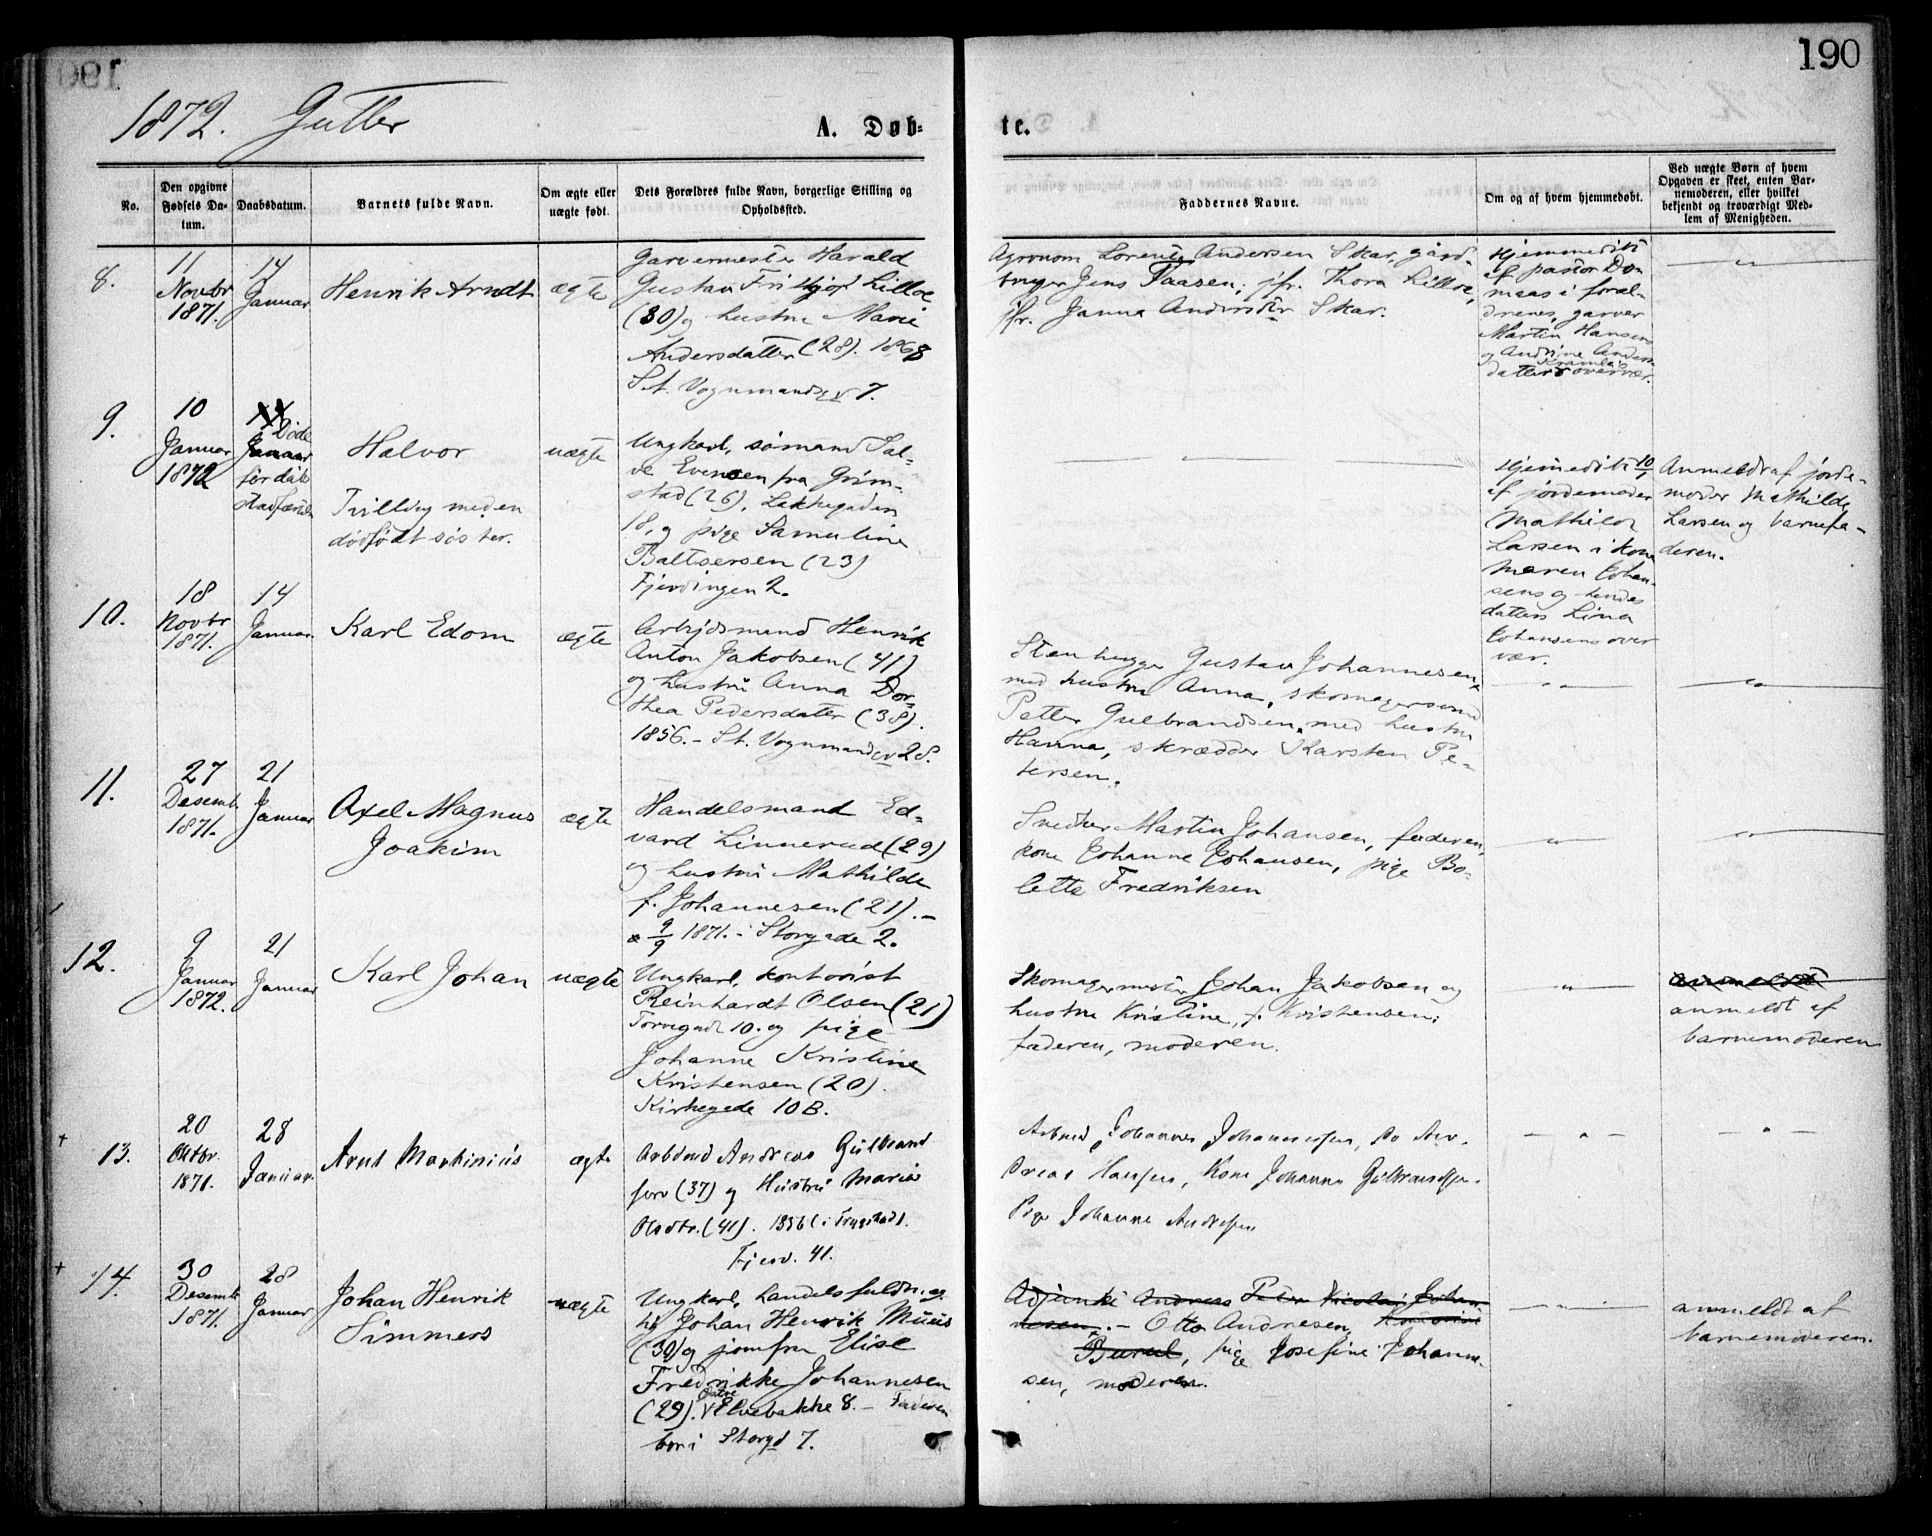 190
1872. Gutter
A. Døb-
te.
No.
Den opgivne
Fødsels Da-
tum.
Daabsdatum.
Barnets fulde Navn.
Om ægte eller
uægte født.
Dets Forældres fulde Navn, borgerlige Stilling og
Opholdssted.
Faddernes Navne.
Om og af hvem hjemmedøbt.
Ved uægte Børn af hvem
Opgaven er skeet, enten Bar-
nemoderen, eller hvilket
bekjendt og troværdigt Med-
lem af Menigheden.
8.
11
Novbr
1871.
14
Januar
Henrik Arndt
ægte
Garvermester Harald
Gustav Frithjof Lilloe
(30) og hustru Marie
Andersdatter (28). 1868
St. Vognmandsg. 7.
Agronom Lorents Andersen Skar, gård-
bruger Jens Taasen, jfr. Thora Lilloe,
jfr. Janna Andersdtr Skar.
Hjemmedöbt
af pastor Don
maas i foræl-
drenes, garver
Martin Hansens
og Andrine Anders
datters overvær.
9.
10
Januar
1872
14
Døde
Januar
før dåb
Halvor
Tvilling med en
dødfödt söster.
uægte
Ungkarl, sömand Sal-
ve Evensen fra Grim-
stad (26), Lakkegaden
18, og pige Samuline
Baltsersen (23)
Fjerdingen 2.
Hjemmedöbt 10/1
af jordemoder
Mathilde
Larsen i kone
Maren Johan-
sens og hendes
datters Lina
Johansens over
vær.
Anmeldt af jorde-
moder Mathilde
Larsen og barnefa-
deren.
10.
18
Novbr
1871.
14
Januar.
Karl Edom
ægte
Arbejdsmand Henrik
Anton Jakobsen (41)
og hustru Anna Dor-
thea Pedersdatter (38).
1856. - St. Vognmandsg. 28.
Stenhugger Gustav Johannesen
med hustru Anna, skomagersvend
Petter Gulbrandsen med hustru
Hanna, skrædder Karsten Pe-
tersen.
11.
27
Desemb.
1871.
21
Januar
Axel Magnus
Joakim
ægte
Handelsmand Ed-
vard Linnerud (29)
og hustru Mathilde
f. Johannesen (21). -
9/9 1871. - Storgade 2.
Snedker Martin Johansen, faderen,
kone Johanne Johansen, pige Bo-
lette Fredriksen
12.
9
Januar
1872.
21
Januar
Karl Johan
uægte
Ungkarl, kontorist
Reinhardt Olsen (21)
Torvegad 10. og pige
Johanne Kristine
Kristensen (20).
Kirkegade 10 B.
Skomagermester Johan Jakobsen og
hustru Kristine, f. Kristensen,
faderen, moderen.
anmeldt
anmeldt af
barnemoderen
13.
20
Oktbr.
1871.
28
Januar.
Arnt Martinius
ægte
Arbdmd Andreas Gulbrand
sen (37) og Hustru Marie
Olsdtr. (41). 1856 (i Trygstad).
Fjerd. 41.
Arbmd Johannes Johannessen, Do An-
dreas Hansen, Kone Johanne Gulbrandsen.
Pige Johanne Andresen
14.
30
Desemb.
1871.
28
Januar
Johan Henrik
Simmers
uægte
Ungkarl, handelsfuldmæg
Johan Henrik Müus
(30) og jomfru Elise
Fredrikke Johannesen
(29). Østre Elvebakke 8. - Faderen
bor i Storgd 7.
Adjunkt Andreas Peter Nicolai Johan
nesen. - Otto Andresen,
pige Josefine Johanne-
sen, moderen.
anmeldt af
barnemoderen.